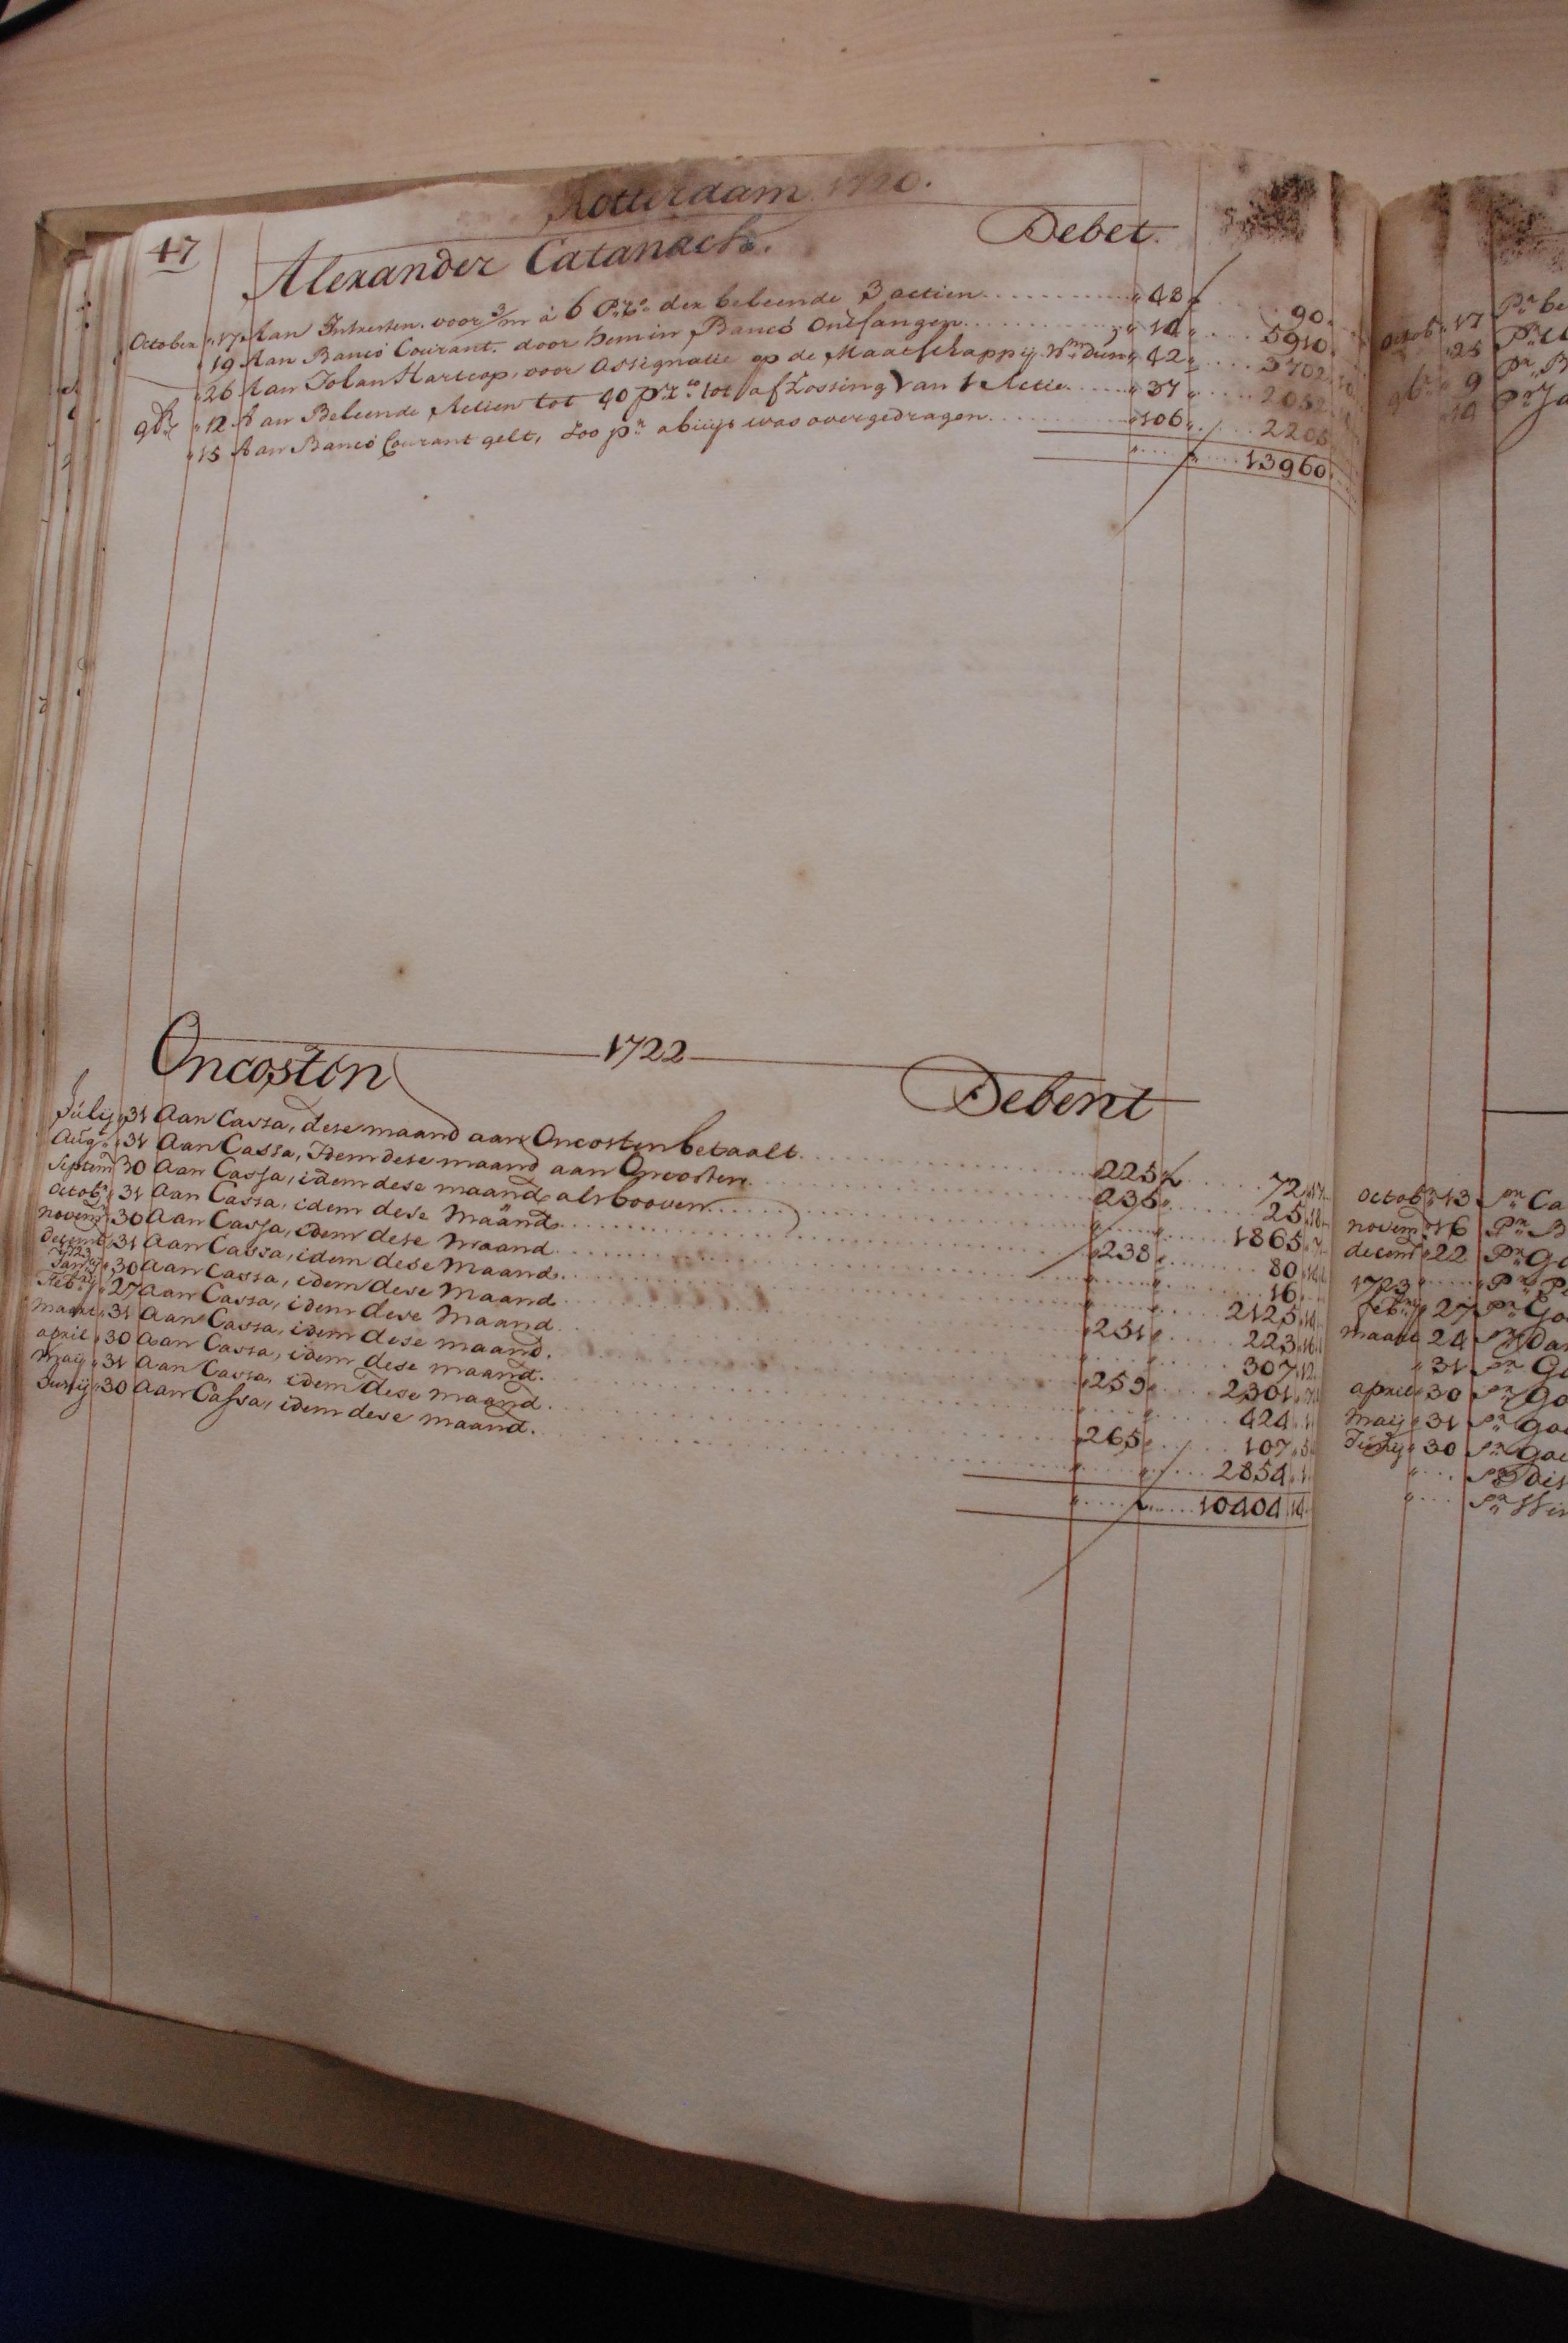 Rotterdam 1720.
47
Alexander Catanach. Debet.
October 17 Aan Intresten. voor 3/m à 6 Pr. Co. der beleende 3 actien 48 90
19 Aan Banco Courant. door hem in Banco Ontfangen 14 5910
26 Aan Johan Hartcop, voor Assignatie op de Maatschappij 42 3702
9br 12 Aan Beleende Actien tot 40 pr. Cto. tot aflossing van 1 Actie 37 2052
15 Aan Banco Courant gelt, Zoo pr abuijs was overgedragen 106 2205
13960
1722
Oncosten Debent
Julij 31 Aan Cassa, dese maand aan Oncosten betaalt. 225 72
Augt 31 Aan Cassa, Idem dese maand aan Oncosten 235 25 18
Septem 30 Aan Cassa, idem dese maand als booven 1865 7
Octobr 31 Aan Cassa, idem dese Maand 238 80
novemr 30 Aan Cassa, idem dese Maand 16
decemb 31 Aan Cassa, idem dese Maand. 2125 14
1723
Janrij 30 Aan Cassa, idem dese Maand 251 223 16
Febrij 27 Aan Cassa, idem dese Maand 307 12
Maart 31 Aan Cassa, idem dese maand. 259 2301
april 30 Aan Cassa, idem dese maand. 424
Maij 31 Aan Cassa, idem dese maand. 265 107
Junij 30 Aan Cassa, idem dese maand. 2854
10404 14
Octob 17 Pr be
25 Pr
9br 9 Pr B
14 Pr Ja
Octobr 13 Pr Ca
novem 16 Pr B
decem 22 Pr Go
1723 Pr
Febrij 27 Pr Go
maart 24 Pr Da
31 Pr Go
april 30 Pr Go
Maij 31 Pr Go
Junij 30 Pr Go
Pr Dis
Pr Win